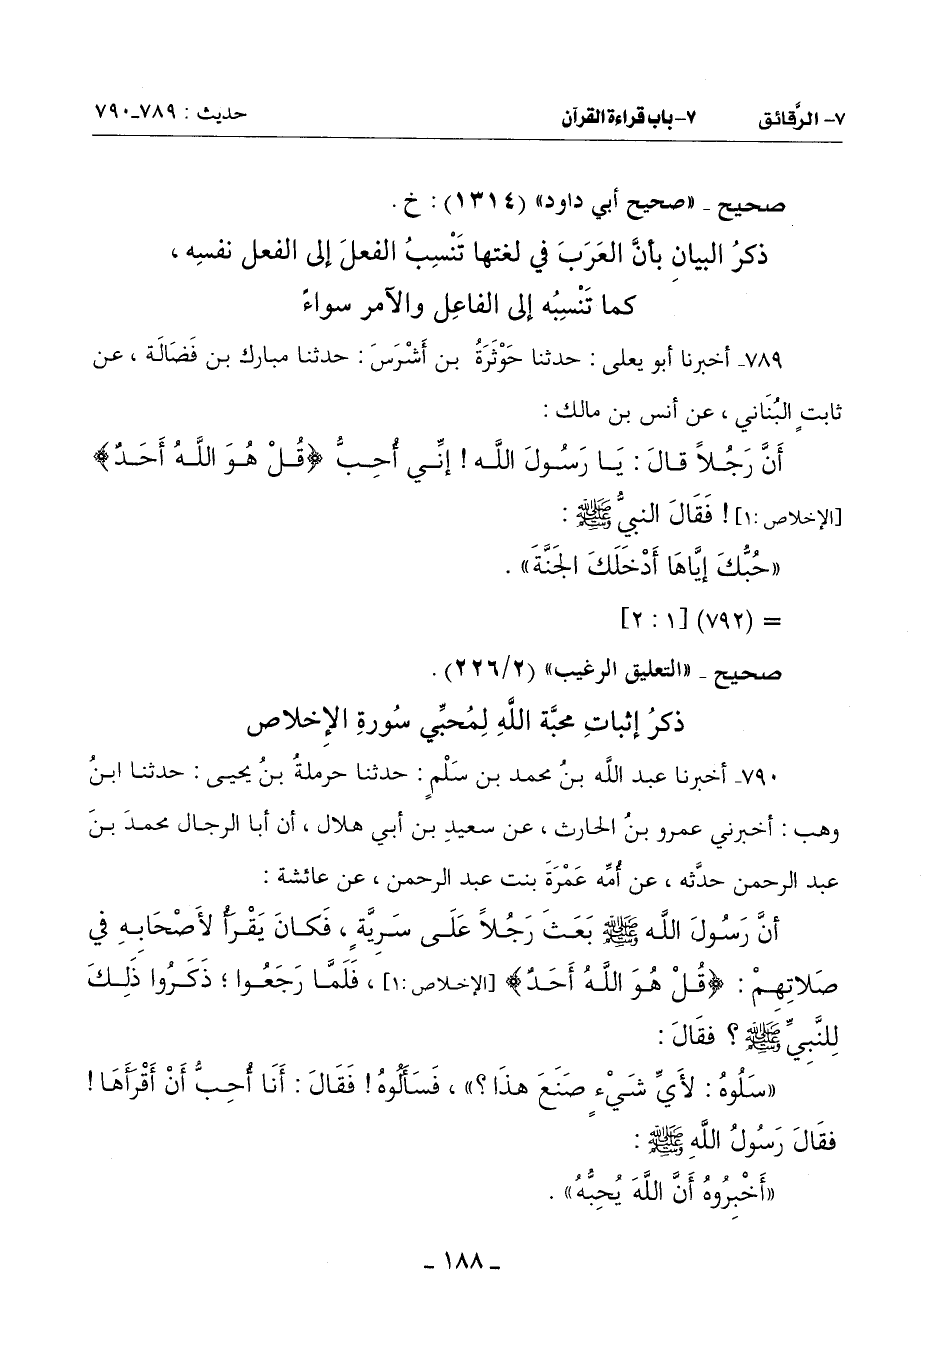 ٧- الرَّقائق ٧- باب قراءة القرآن حديث : ٧٨٩-٧٩٠
صحيح - «صحيح أبي داود» (١٣١٤) : خ .
ذكرُ البيانِ بأنَّ العَرَبَ في لغتها تَنْسِبُ الفعلَ إلى الفعل نفسِه ،
كما تَنْسِبُه إلى الفاعِل والآمر سواءً
٧٨٩- أخبرنا أبو يعلى : حدثنا حَوْثَرَةُ بن أَشْرَسَ : حدثنا مبارك بن فَضَالَة ، عن
ثابتٍ البُنَاني ، عن أنس بن مالك :
أَنَّ رَجُلاً قالَ : يَا رَسُولَ اللَّه ! إنِّي أُحِبُّ ﴿قُلْ هُوَ اللَّهُ أَحَدٌ﴾
[الإخلاص :١] ! فَقَالَ النبيُّ ﷺ :
«حُبُّكَ إيَّاهَا أَدْخَلَكَ الجَنَّةَ» .
= (٧٩٢) [١ : ٢]
صحيح - «التعليق الرغيب» (٢٢٦/٢) .
ذكرُ إثباتِ محبَّة اللَّهِ لِمُحبِّي سُورةِ الإخلاص
٧٩٠- أخبرنا عبد اللَّه بنُ محمد بن سَلْمٍ : حدثنا حرملةُ بنُ يحيى : حدثنا ابنُ
وهب : أخبرني عمرو بنُ الحارث ، عن سعيدِ بن أبي هلال ، أن أبا الرجال محمدَ بنَ
عبد الرحمن حدَّثه ، عن أُمِّه عَمْرَةَ بنت عبد الرحمن ، عن عائشة :
أنَّ رَسُولَ اللَّه ﷺ بَعَثَ رَجُلاً عَلَى سَرِيَّةٍ ، فَكَانَ يَقْرَأُ لأَصْحَابِهِ في
صَلاتِهِمْ : ﴿قُلْ هُوَ اللَّهُ أَحَدٌ﴾ [الإخلاص :١] ، فَلَمَّا رَجَعُوا ؛ ذَكَرُوا ذَلِكَ
لِلنَّبِيِّ ﷺ ؟ فقَالَ :
«سَلُوهُ : لأَيِّ شَيْءٍ صَنَعَ هذَا ؟» ، فَسَأَلُوهُ ! فَقَالَ : أَنَا أُحِبُّ أَنْ أَقْرَأَهَا !
فقَالَ رَسُولُ اللَّهِ ﷺ :
«أَخْبِرُوهُ أَنَّ اللَّهَ يُحِبُّهُ» .
- ١٨٨ -